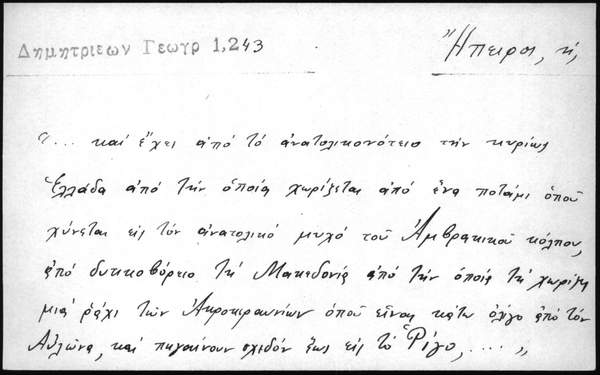 Δημητριεων Γεωγρ 1,243
Ἤπειρος, ἡ,
"... καί ἔχει ἀπό τό ἀνατολικονότειο τήν κυρίως
Ἑλλάδα ἀπό τήν ὁποία χωρίζεται ἀπό ἕνα ποτάμι ὁποῦ
χύνεται εἰς τόν ἀνατολικό μυχό τοῦ Ἀμβρακικοῦ κόλπου,
ἀπό δυκκοβόρειο τή Μακεδονία ἀπό τήν ὁποία τή χωρίζει
μιά ῥάχι τῶν Ἀκροκεραυνίων ὁποῦ εἶναι κάτω ὀλίγο ἀπό τόν
Αὐλῶνα, καί πηγαίνουν σχεδόν ἕως εἰς τό Ῥίγο, .... "